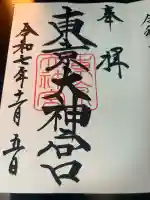 奉拝
東京大神宮
令和七年十二月五日